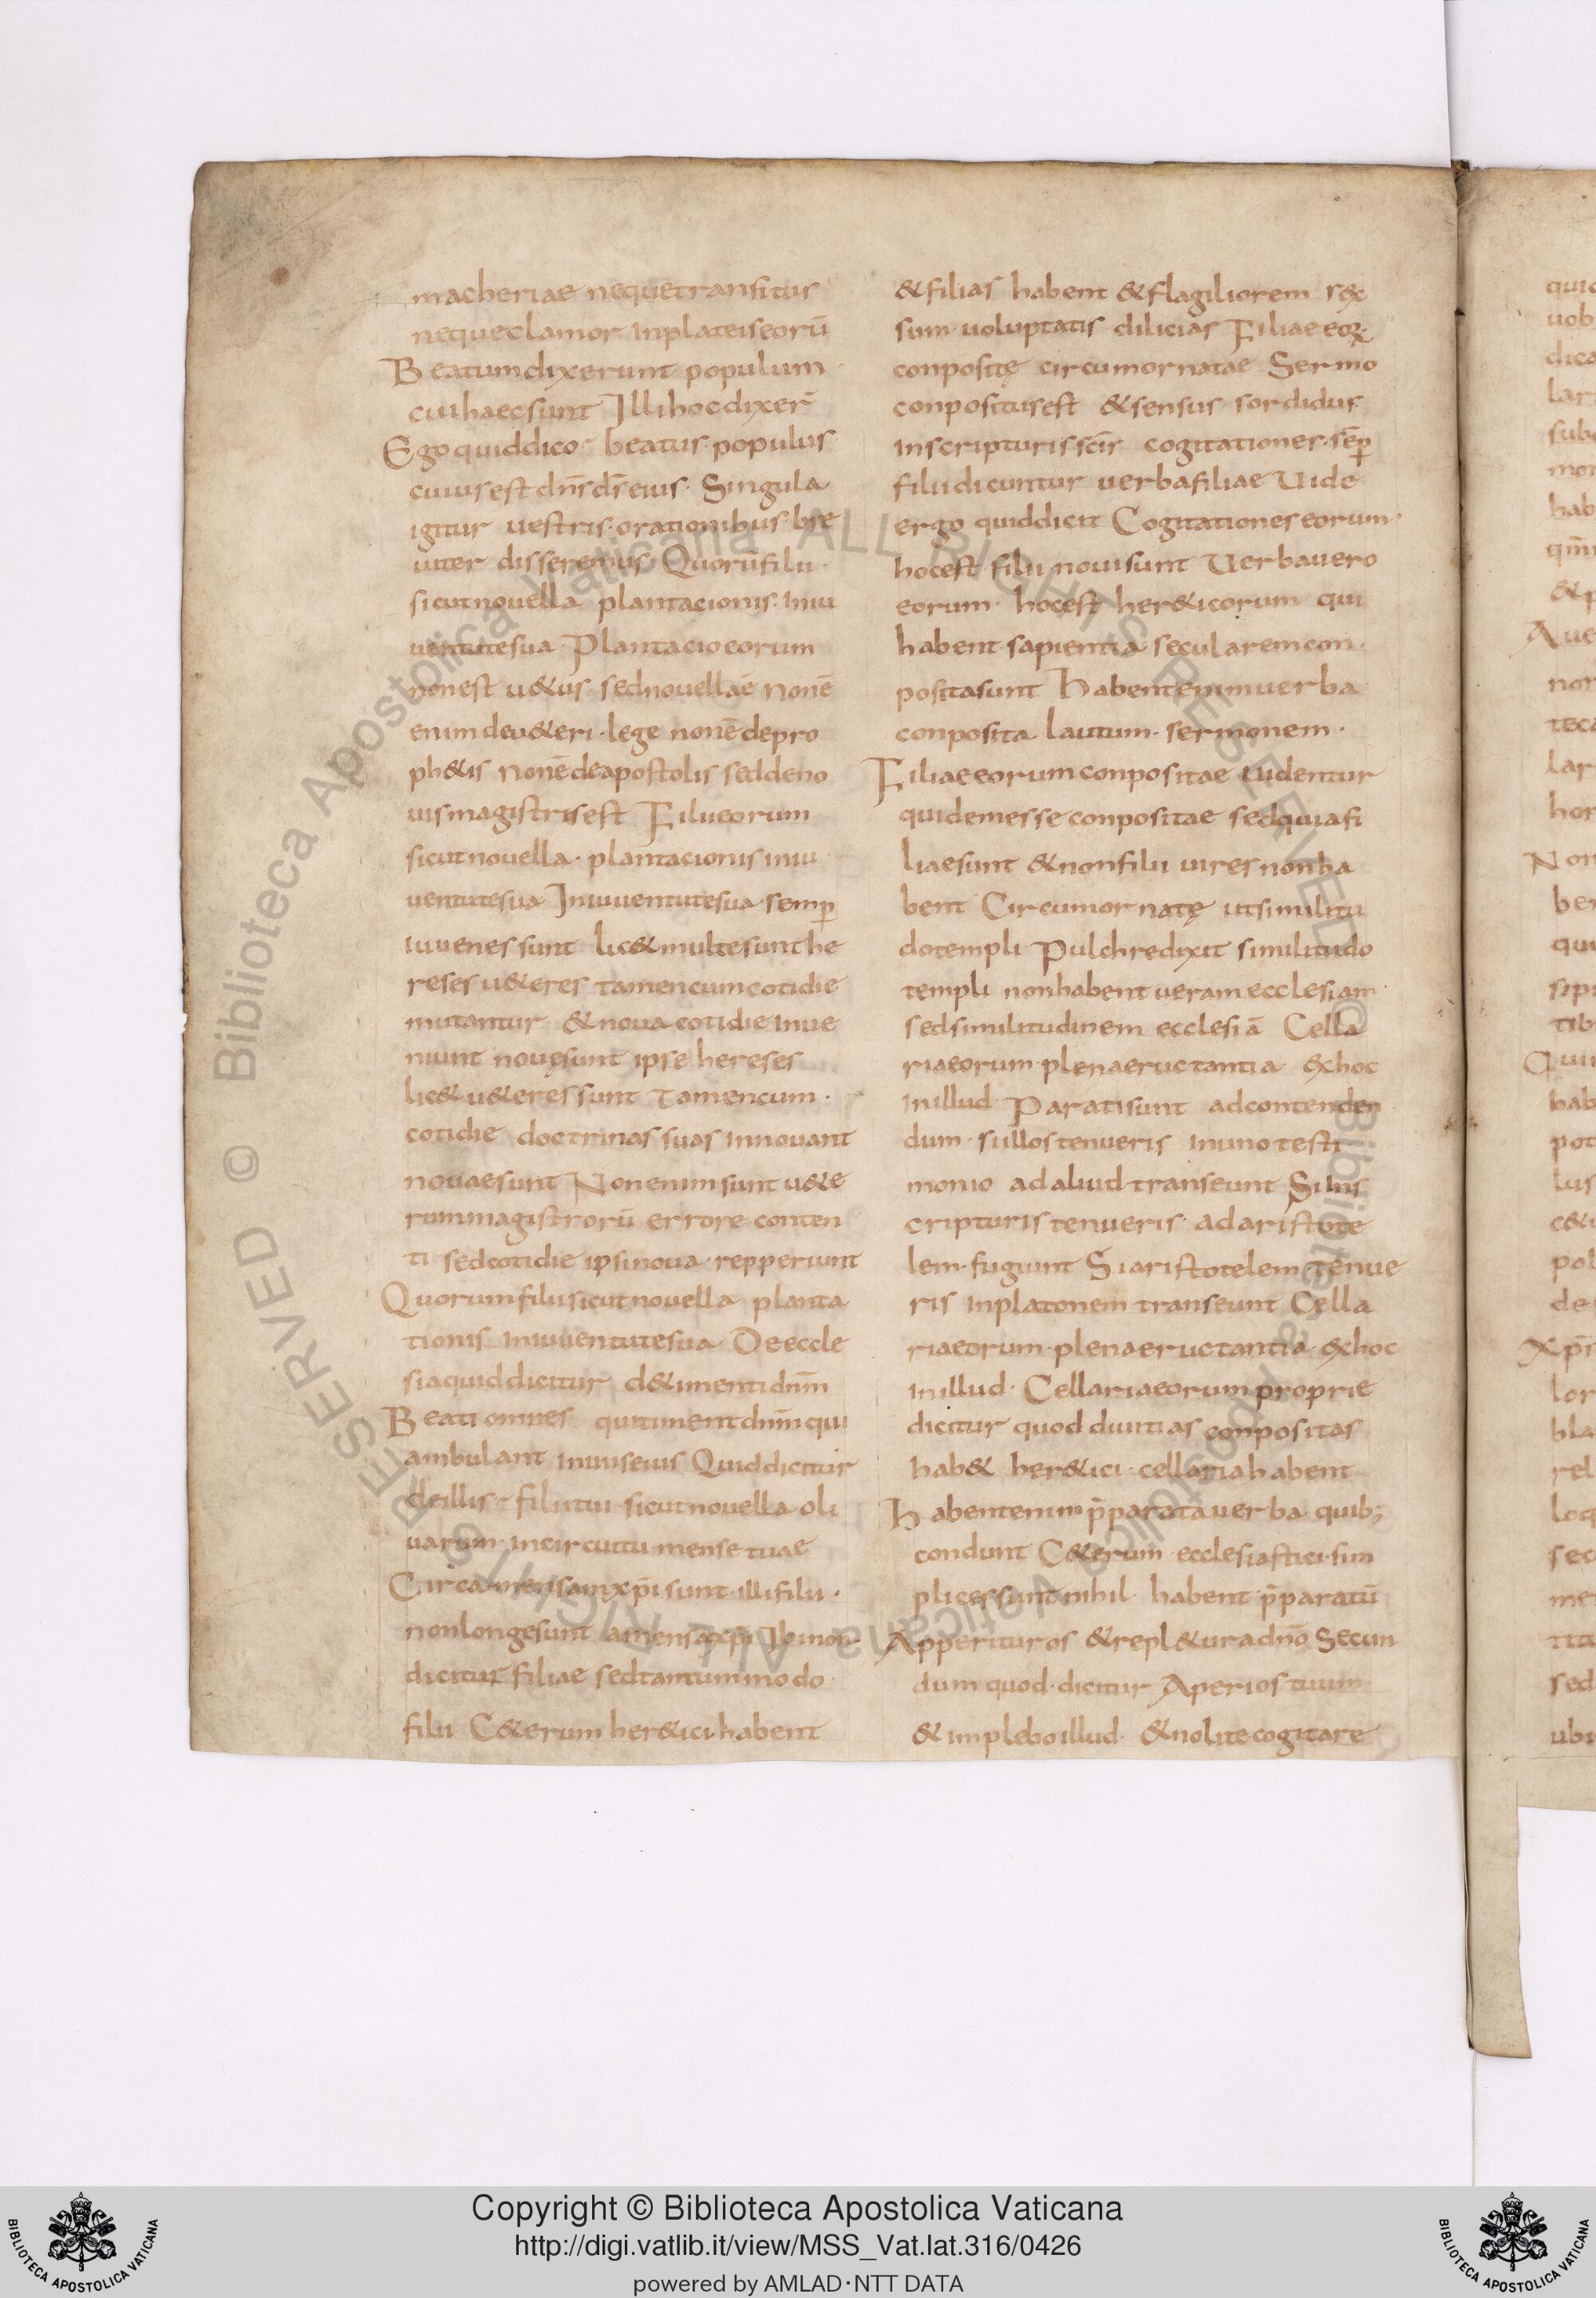 macheriae neque transitus
neque clamor in plateis eorū
Beatum dixerunt populum
cui haec sunt Illi hoc dixer̄
Ego quid dico· beatus· populus
cuius est dn̄s d̄s eius· Singula
igitur vestris· orationibus· bre
uiter disseremus· Quorū filii·
sicut novella plantacionis· iniu
ventute sua· Plantacio eorum
non est u&us· sed novellae Non ē
enim de u&eri· lege non ē de pro
ph&is Non ē de apostolis sed de no
uis magistris est Filii eorum
sicut novella· plantacionis iniu
ventute sua In iuventute sua· semp̄
iuvenes sunt lic& multe sunt he
reses u&eres tamen cum cotidie
mutantur & nova cotidie inve
niunt novę sunt ipse hereses
lic& u&eres sunt Tamen cum·
cotidie doctrinas suas innovant
novae sunt Non enim sunt u&e
rum magistrorū errore conten
ti sed cotidie ipsi nova· repperiunt
Quorum filii sicut novella planta
tionis in iuventute sua· De eccle
sia quid dicitur d& imenti dn̄m
Beati omnes· qui timent dn̄m qui
ambulant in viis eius Quid dicitur
de illis· filii tui· sicut novella oli
varum· in circuitu· mense tuae
Circa mensam xp̄i sunt· illi filii·
non longe sunt a mensa xp̄i Ibi non
dicitur filiae sed tantummodo·
filii C&erum her&ici· habent
& filias habent & flagiliorem sęx
sum· voluptatis· dilicias Filiae eoꝝ
conpositę circumornatae Sermo
conpositus est & sensus· sordidus·
In scripturis sc̄is cogitationes· sēp̄
filii dicuntur verba filiae Vide
ergo quid dicit Cogitationes eorum·
hoc est filii novi sunt Verba vero
eorum· hoc est her&icorum qui
habent· sapientia secularem con·
posita sunt Habent enim verba
conposita lautum· sermonem·
Filiae eorum conpositae videntur
quidem esse conpositae sed quia fi
liae sunt & non filii vires non ha
bent Circumornatę ut similitu
do templi Pulchre dixit similitudo
templi non habent veram ecclesiam·
sed similitudinem ecclesiā Cella
ria eorum· plena eructantia ex hoc
in illud· Parati sunt ad contenden
dum· si illos tenueris in uno testi
monio ad aliud transeunt Si in s
cripturis tenueris· ad aristote
lem· fugiunt Si aristotelem· tenue
ris in platonem transeunt Cella
ria eorum· plena eructantia· ex hoc
in illud· Cellaria eorum proprie
dicitur quod divitias conpositas
hab& her&ici· cellaria habent
Habent enim p̄parata verba· quib;
condunt C&erum· ecclesiastici· sim
plices sunt nihil habent p̄paratū
Apperitur os & repl&ur a dn̄o Secun
dum quod· dicitur Aperi os tuum
& implebo illud· & nolite cogitare
Copyright © Biblioteca Apostolica Vaticana
http://digi.vatlib.it/view/MSS_Vat.lat.316/0426
powered by AMLAD·NTT DATA
BIBLIOTECA APOSTOLICA VATICANA
BIBLIOTECA APOSTOLICA VATICANA